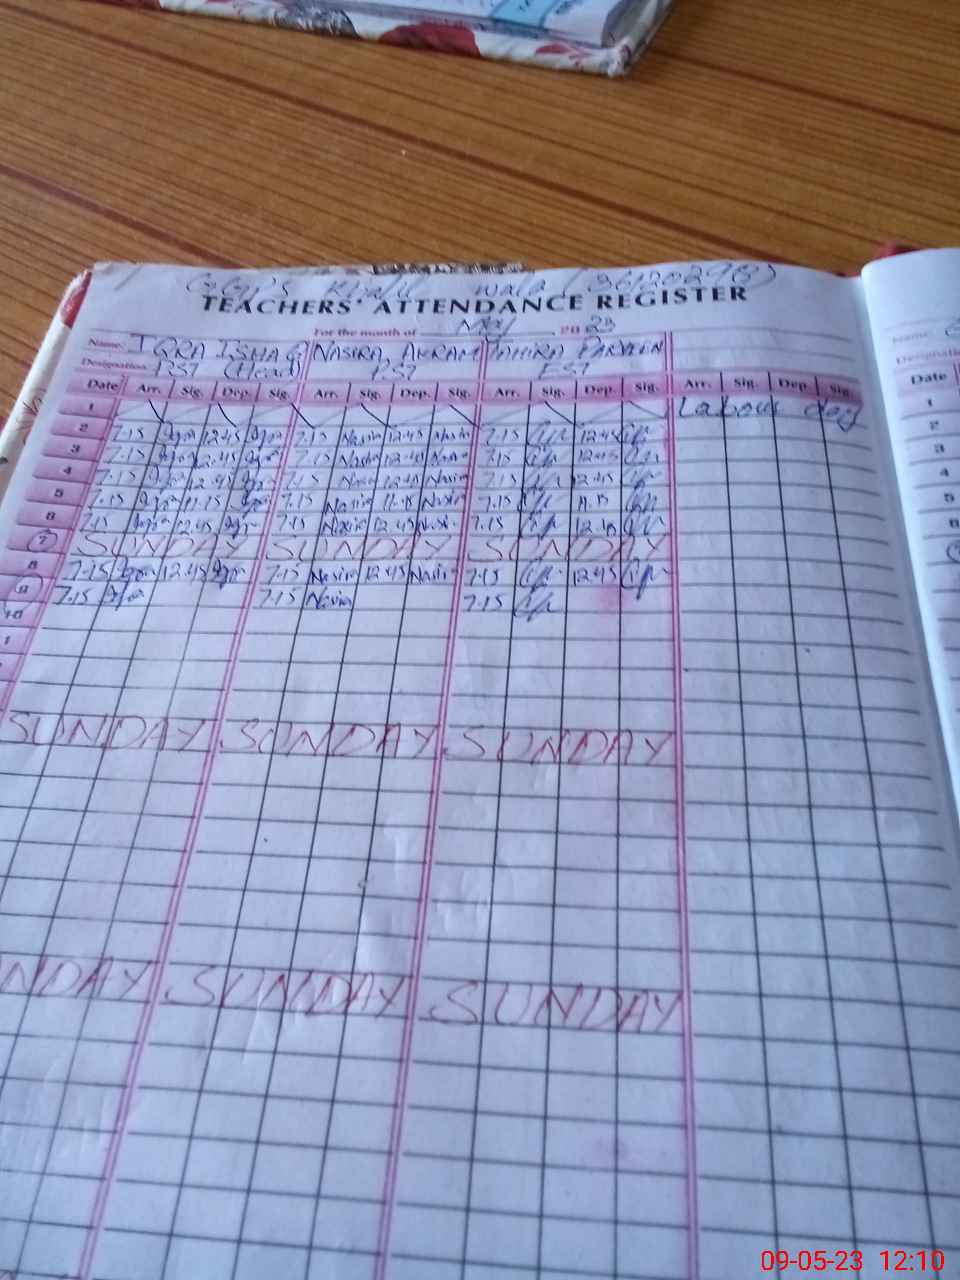 GGPS wala (36120298)
TEACHERS' ATTENDANCE REGISTER
For the month of May 2023
Name: IQRA ISHAQ NASIRA AKRAM PARVEEN
Designation PST (Head) PST EST
Date Arr. Sig. Dep. Sig. Arr. Sig. Dep. Sig. Arr. Sig. Dep. Sig. Arr. Sig. Dep. Sig.
1 Labour day
2 7.15 Iqra 12.45 Iqra 7.15 Nasira 12.45 Nasira 7.15 12.45
3 7.15 Iqra 12.45 Iqra 7.15 Nasira 12.45 Nasira 7.15 12.45
4 7.15 Iqra 12.45 Iqra 7.15 Nasira 12.45 Nasira 7.15 12.45
5 7.15 Iqra 11.15 Iqra 7.15 Nasira 11.15 Nasira 7.15 11.15
6 7.15 Iqra 12.45 Iqra 7.15 Nasira 12.45 Nasira 7.15
7 SUNDAY SUNDAY SUNDAY
8 7.15 Iqra 12.45 Iqra 7.15 Nasira 12.45 Nasira 7.15 12.45
9 7.15 Iqra 7.15 Nasira 7.15
10
SUNDAY SUNDAY SUNDAY
NDAY SUNDAY SUNDAY
Name:
Designatio
Date
1
2
3
4
5
6
09-05-23 12:10